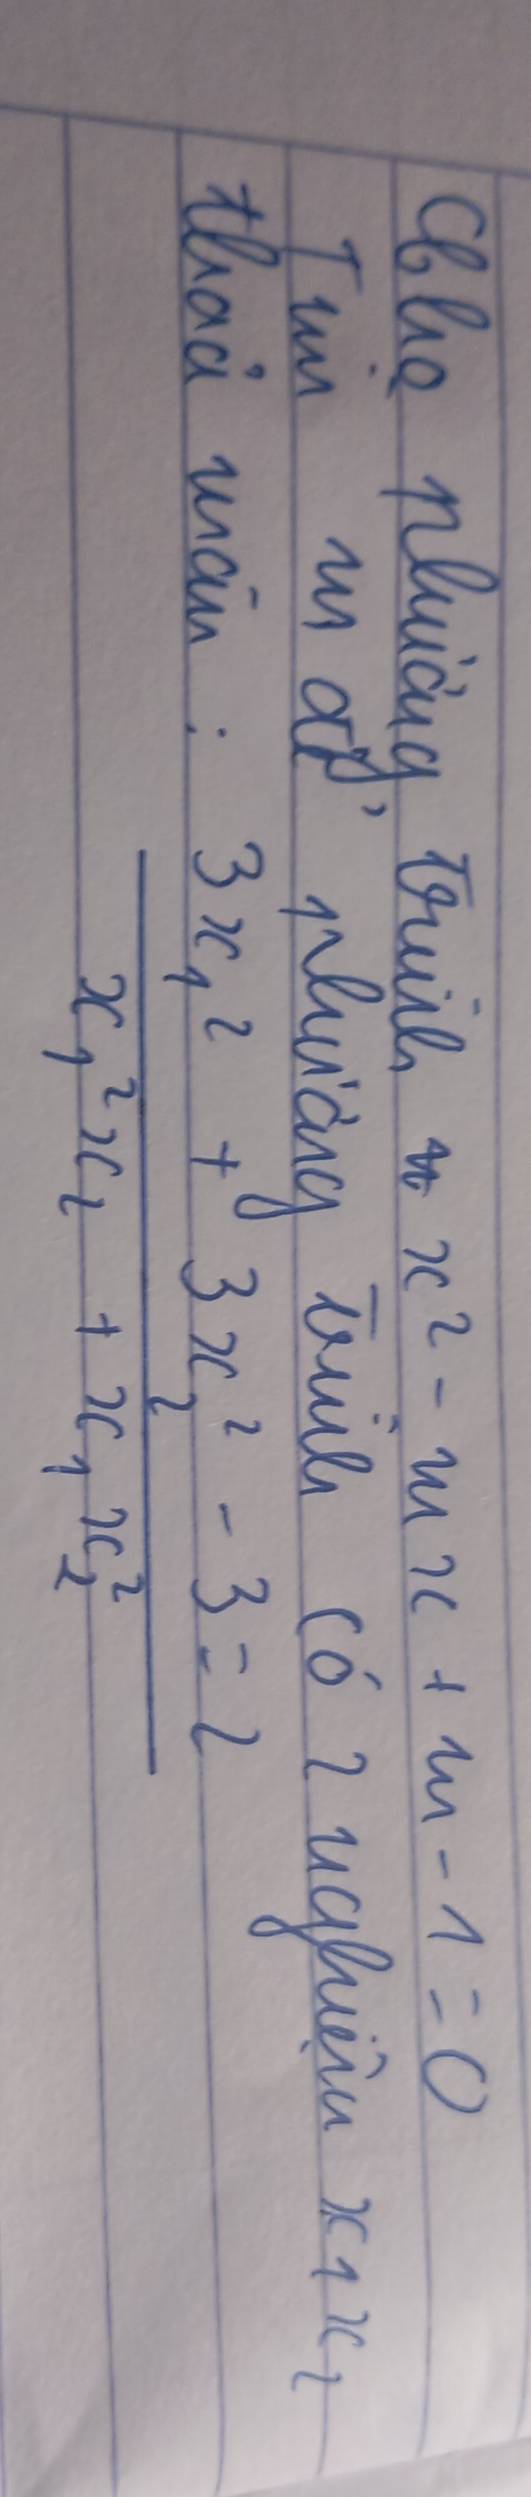 Cho phương trình x² - mx + m - 1 = 0
Tìm m để phương trình có 2 nghiệm x₁ x₂
thoả mãn : 3x₁² + 3x₂² - 3 = 2
x₁²x₂ + x₁x₂²